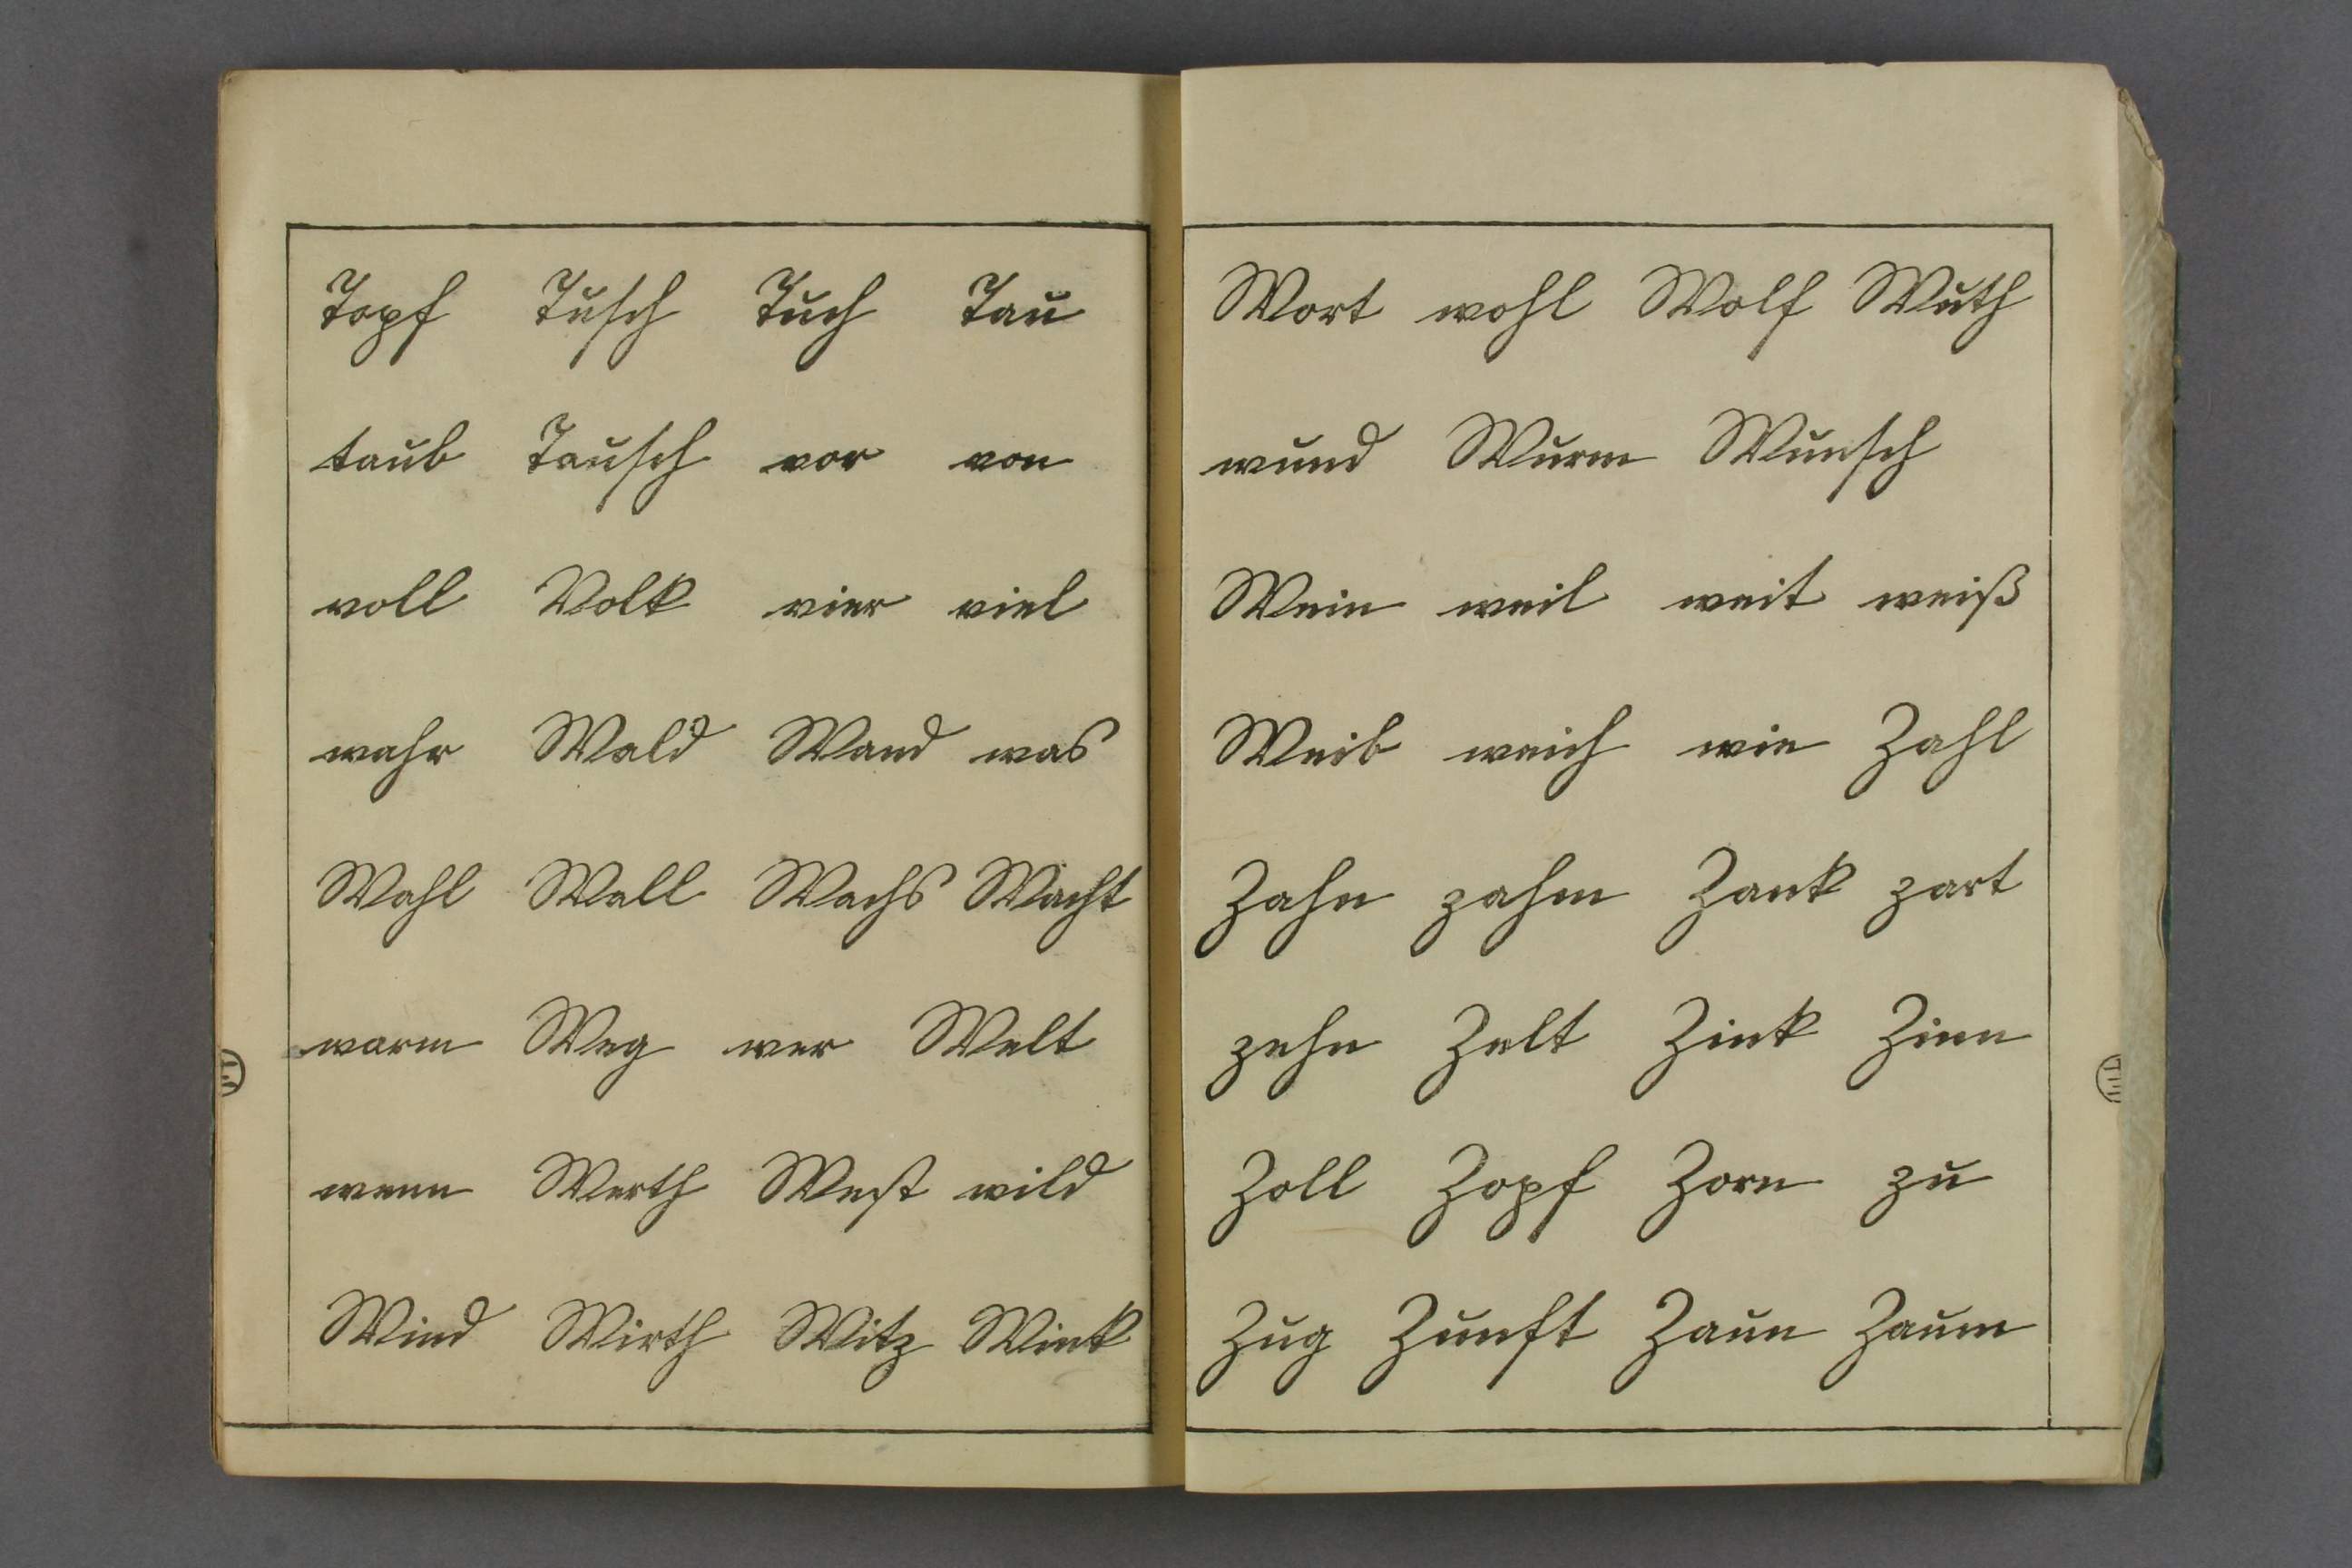 Topf Tusch Tuch Tau
taub Tausch vor von
voll Volk vier viel
wahr Wald Wand was
Wahl Wall Wachs Wacht
warm Weg wer Welt
wenn Werth West wild
Wind Wirth Witz Wink
Wort wohl Wolf Wuth
wund Wurm Wunsch
Wein weil weit weiß
Weib weich wie Zahl
Zahn zahm Zank zart
zehn Zelt Zink Zinn
Zoll Zopf Zorn zu
Zug Zunft Zaun Zaum